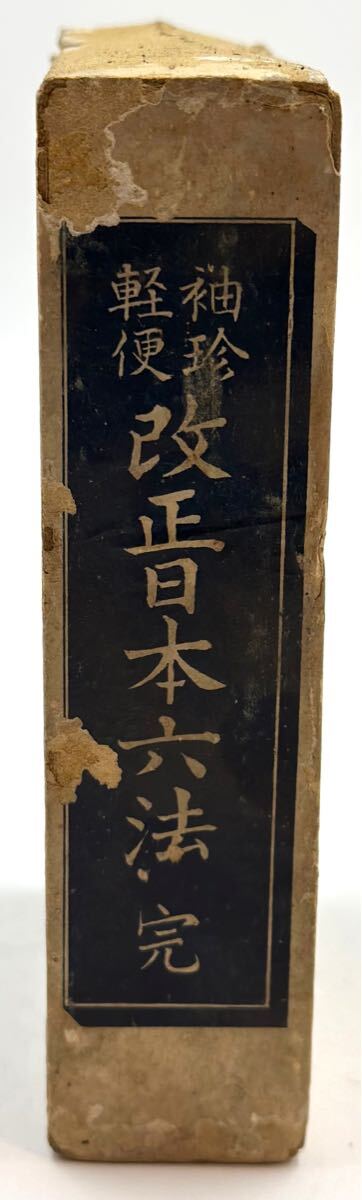 袖珍
軽便
改正日本六法 完